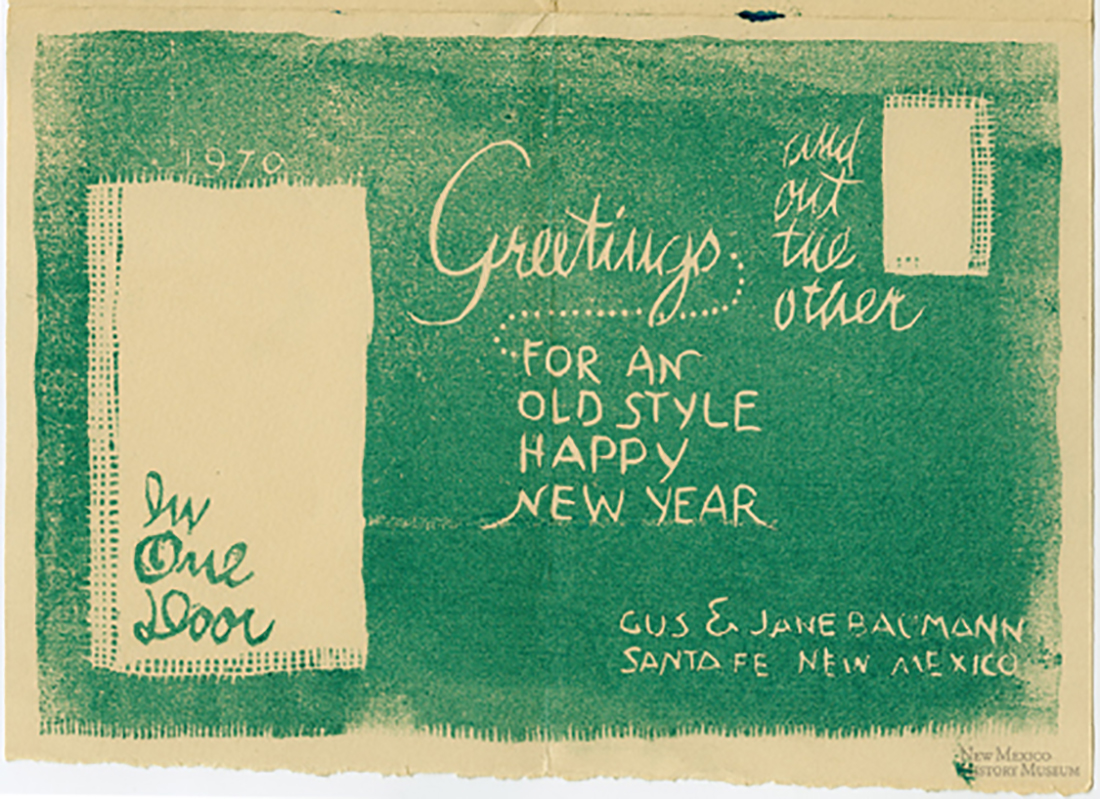 1970
In
One
Door
Greetings
FOR AN
OLD STYLE
HAPPY
NEW YEAR
and
out
the
other
GUS & JANE BAUMANN
SANTA FE NEW MEXICO
NEW MEXICO
HISTORY MUSEUM